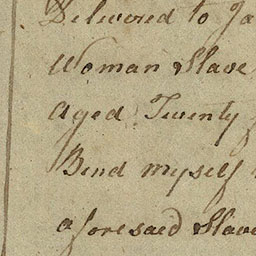 Delivered to Ja
Woman Slave
Aged Twenty
Bind myself
aforesaed Slave